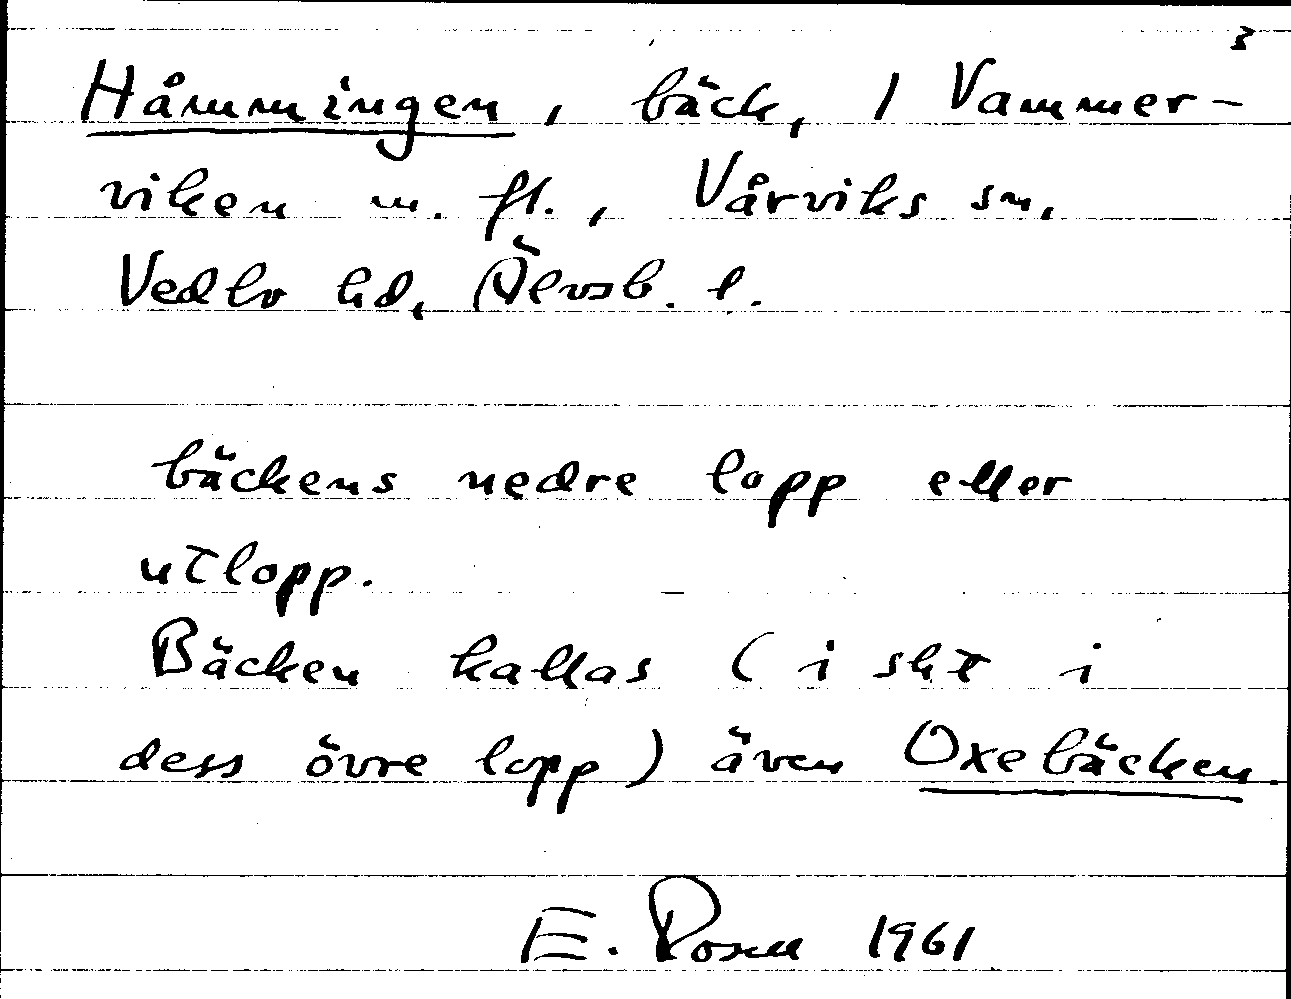 3
Håmmingen, bäck, 1 Vammer-
viken m. fl., Vårviks sn,
Vedbo hd, Älvsb. l.
bäckens nedre lopp eller
utlopp.
Bäcken kallas (i sht i
dess övre lopp) även Oxebäcken.
E. Rosell 1961